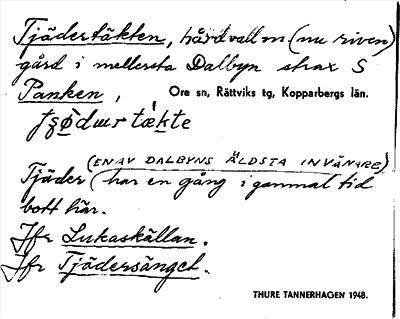 Tjädertäkten, hårdvall m (nu riven)
gård i mellersta Dalbyn strax S
Panken,
Ore sn, Rättviks tg, Kopparbergs län.
tækte
(EN AV DALBYNS ÄLDSTA INVÅNARE)
Tjäder har en gång i gammal tid
bott här.
Jfr Lukaskällan.
Jfr Tjädersänget.
THURE TANNERHAGEN 1948.